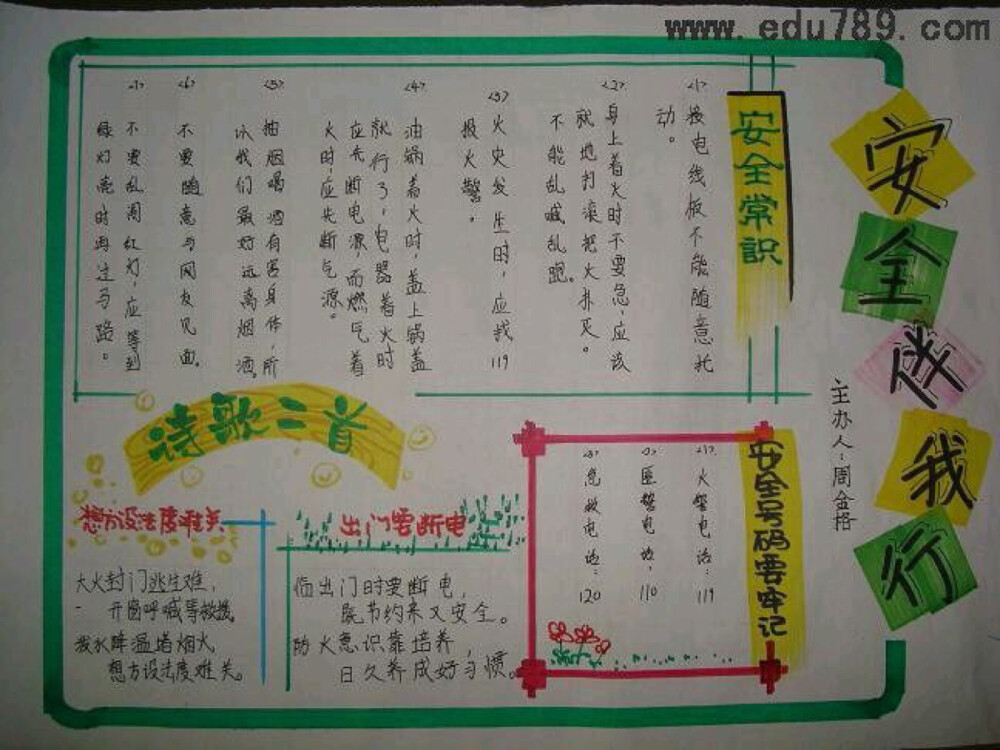 www.edu789.com
安全伴我行
主办人:周金格
安全常识
<1>接电线板不能随意扎
动。
<2>身上着火时不要急,应该
就地打滚把火扑灭。
不能乱喊乱跑。
<3>火灾发生时,应找119
报火警。
<4>油锅着火时,盖上锅盖
就行了,电器着火时
应先断电源,而燃气着
火时,应先断气源。
<5>抽烟喝酒有害身体,所
以我们最好远离烟酒。
<6>不要随意与网友见面。
<7>不要乱闯红灯,应等到
绿灯亮时再过马路。
诗歌二首
想方设法度难关
大火封门逃生难,
开窗呼喊等救援
泼水降温堵烟火
想方设法度难关。
出门要断电
临出门时要断电,
既节约来又安全。
防火意识靠培养,
日久养成好习惯。
安全号码要牢记
<1>火警电话:119
<2>匪警电话:110
<3>急救电话:120